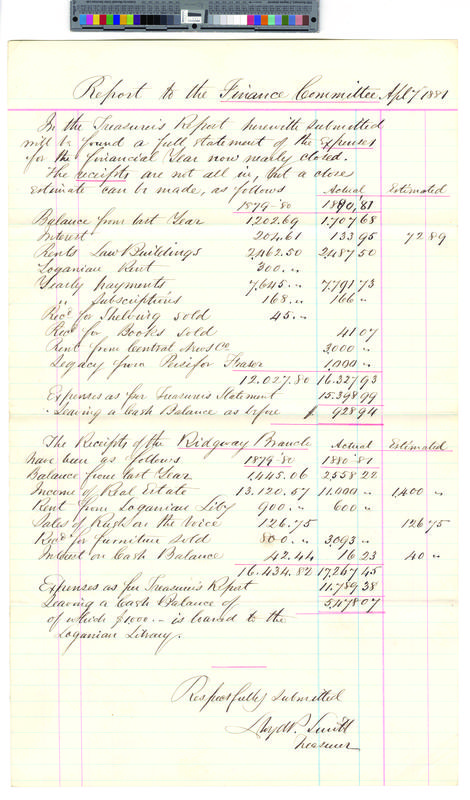 Report to the Finance Committee Apl 7/1881
In the Treasurer's Report herewith submitted
will be found a full statement of the Expenses
for the financial Year now nearly closed.
The receipts are not all in, but a close
estimate can be made, as follows Actual Estimated
1879-'80 1880,'81
Balance from last Year 1202.69 1707 68
Interest 204.61 133 95 72 89
Rents Law Buildings 2,462.50 2,487 50
Loganian Rent 300. "
Yearly payments 7,645. " 7,791 73
" Subscriptions 168. " 166 "
Recd for sold 45. "
Recd for Books sold 41 07
Rent from Central News Co 3000 "
Legacy from Persifor Frazer 1,000 "
12.027.80 16.327 93
Expenses as per Treasurer's Statement 15.398 99
Leaving a Cash Balance as before $ 928 94
The Receipts of the Ridgway Branch Actual Estimated
have been as follows 1879-'80 1880-81
Balance from last Year 1,445.06 2558 22
Income of Real Estate 13.120.57 11.000 " 1,400 "
Rent from Loganian Liby 900. " 600 "
Sales of Rush on the Voice 126.75 126 75
Recd for furniture sold 800. " 3093 "
Interest on Cash Balance 42.44 16 23 40 "
16.434.82 17,267 45
Expenses as per Treasurer's Report 11.789 38
Leaving a Cash Balance of 5,478 07
of which $1000. - is loaned to the
Loganian Library.
Respectfully submitted
Lloyd P. Smith
Treasurer